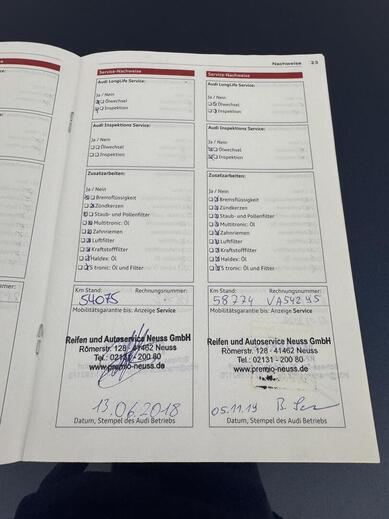 Nachweise 23
Service-Nachweise
Audi LongLife Service:
Ja / Nein
Ölwechsel
Inspektion
Audi Inspektions Service:
Ölwechsel
Inspektion
Zusatzarbeiten:
Ja / Nein
Bremsflüssigkeit
Zündkerzen
Staub- und Pollenfilter
Multitronic: Öl
Zahnriemen
Luftfilter
Kraftstofffilter
Haldex: Öl
S tronic: Öl und Filter
Km Stand: Rechnungsnummer:
54075
Mobilitätsgarantie bis: Anzeige Service
Reifen und Autoservice Neuss GmbH
Römerstr. 128 · 41462 Neuss
Tel.: 02131 - 200 80
www.premio-neuss.de
13.06.2018
Datum, Stempel des Audi Betriebs
Service-Nachweise
Audi LongLife Service:
Ja / Nein
Ölwechsel
Inspektion
Audi Inspektions Service:
Ölwechsel
Inspektion
Zusatzarbeiten:
Ja / Nein
Bremsflüssigkeit
Zündkerzen
Staub- und Pollenfilter
Multitronic: Öl
Zahnriemen
Luftfilter
Kraftstofffilter
Haldex: Öl
S tronic: Öl und Filter
Km Stand: Rechnungsnummer:
58774 VA54245
Mobilitätsgarantie bis: Anzeige Service
Reifen und Autoservice Neuss GmbH
Römerstr. 128 · 41462 Neuss
Tel.: 02131 - 200 80
www.premio-neuss.de
05.11.19
Datum, Stempel des Audi Betriebs